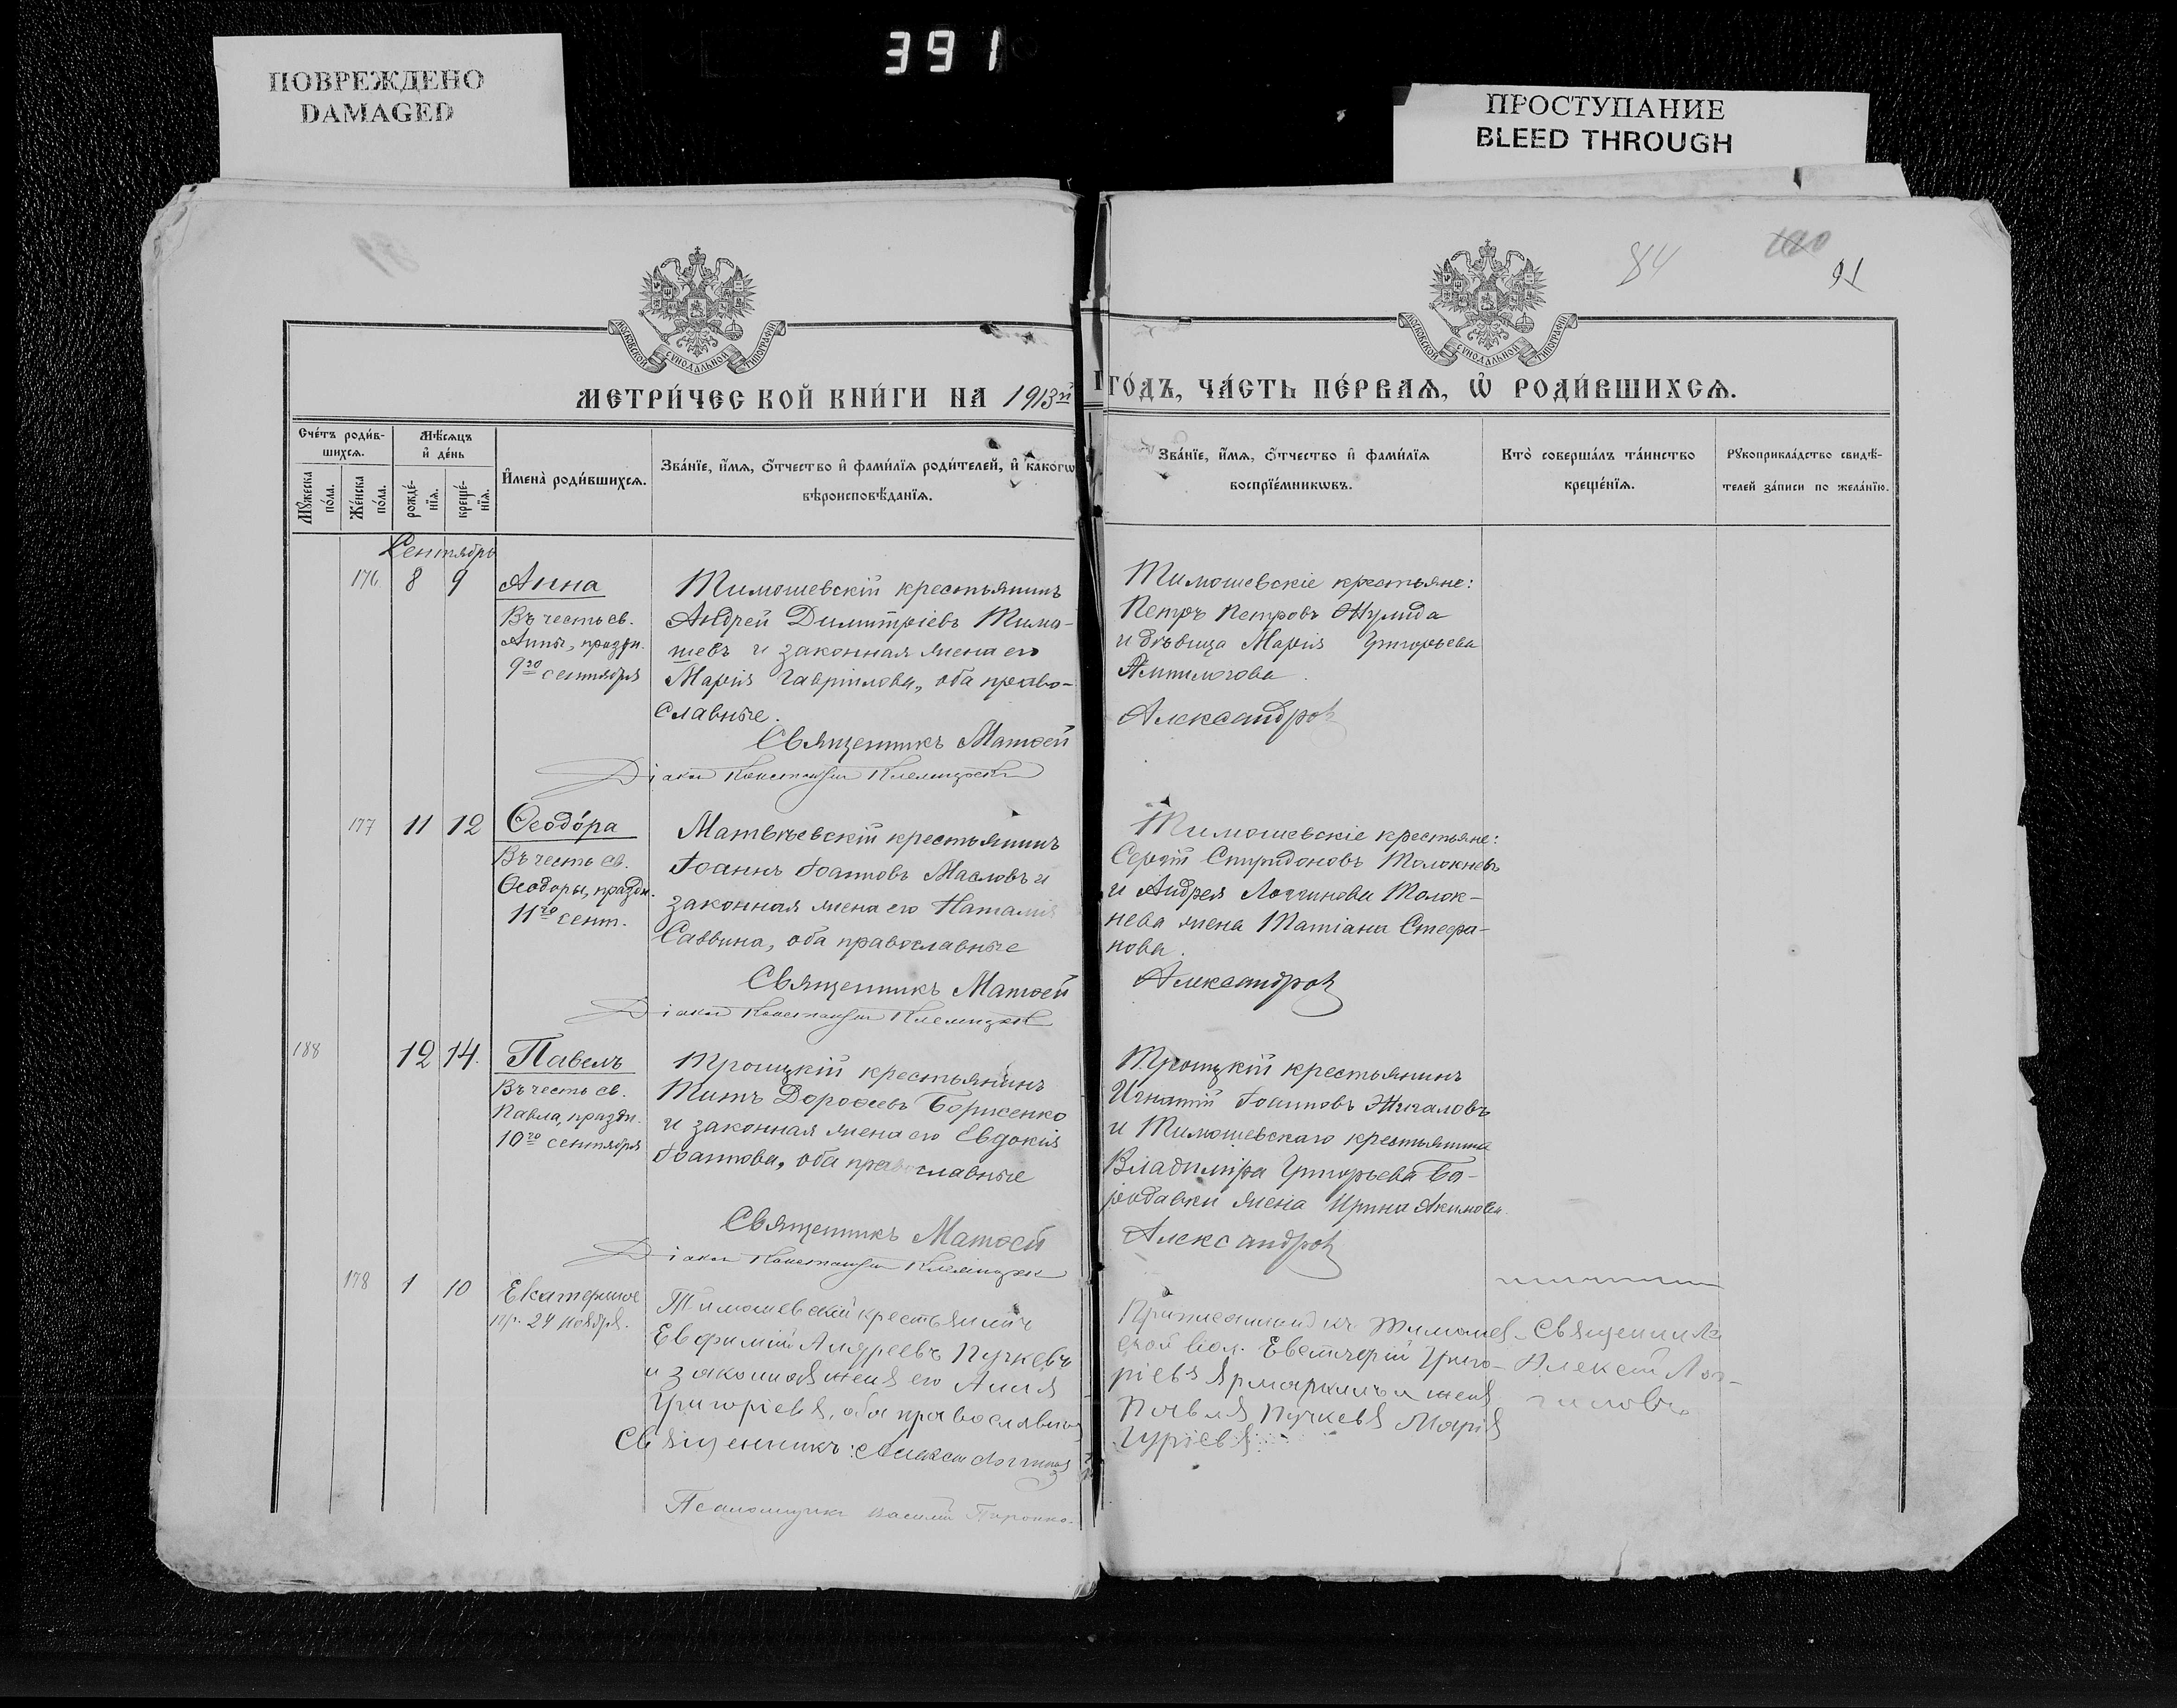 391
ПОВРЕЖДЕНО
DAMAGED
ПРОСТУПАНИЕ
BLEED THROUGH
84
91
МОСКОВСКОЙ СѴНОДАЛЬНОЙ ТИПОГРАФІИ
МОСКОВСКОЙ СѴНОДАЛЬНОЙ ТИПОГРАФІИ
МЕТРИ́ЧЕСКОЙ КНИ́ГИ НА 1913й
ГО́ДЪ, ЧА́СТЬ ПЕ́РВАѦ, Ѡ҆ РОДИ́ВШИХСѦ.
Сче́тъ роди́в-
шихсѧ.
Мꙋ́жеска
по́ла.
Же́нска
по́ла.
Мѣ́сѧцъ
и҆ де́нь
рожде́-
нїѧ.
креще́-
нїѧ.
И҆мена̀ роди́вшихсѧ.
Зва́нїе, и҆́мѧ, ѻ҆́тчество и҆ фами́лїѧ роди́телей, и҆ како́гѡ
вѣроисповѣ́данїѧ.
Зва́нїе, и҆́мѧ, ѻ҆́тчество и҆ фами́лїѧ
воспрїе́мникѡвъ.
Кто̀ соверша́лъ та́инство
креще́нїѧ.
Рꙋкоприкла́дство свидѣ́-
телей за́писи по жела́нїю.
Сентябрь
176 8 9
Анна
Въ честь св.
Анны, праздн.
9го сентября
Тимошевскій крестьянинъ
Андрей Димитріевъ Тимо-
шевъ и законная жена его
Марія Гавріилова, оба право-
славные.
Священникъ Матѳей
Діаконъ Константинъ
Тимошевскіе крестьяне:
Петръ Петровъ Жулида
и дѣвица Марія Григорьева
Александровъ
177 11 12
Ѳеодо́ра
Въ честь св.
Ѳеодоры, праздн.
11го сент.
Матвѣевскій крестьянинъ
Іоаннъ Іоанновъ Масловъ и
законная жена его Наталія
Саввина, оба православные
Священникъ Матѳей
Діаконъ Константинъ
Тимошевскіе крестьяне:
Сергій Спиридоновъ Толокневъ
и Андрея Логгинова Толок-
нева жена Татіана Стефа-
нова.
Александровъ
188 12 14.
Павелъ
Въ честь св.
Павла, праздн.
10го сентября
Троицкій крестьянинъ
Титъ Дороѳеевъ Борисенко
и законная жена его Евдокія
Іоаннова, оба православные
Священникъ Матѳей
Діаконъ Константинъ
Троицкій крестьянинъ
Игнатій Іоанновъ Жигаловъ
и Тимошевскаго крестьянина
Владиміра Григорьева Бо-
родавки жена Ирина Акимова.
Александровъ
178 1 10
Екатерина
пр. 24 ноября.
Тимошевскій крестьянинъ
Евфимій Андреевъ Пучкевъ
и законная жена его Анна
Григоріева, оба православные
Священникъ: Алексій Логгиновъ
Псаломщикъ Василій
Приписанный къ Тимошев-
ской вол. Григо-
ріевъ Ярмаркинъ и жена
Павла Пучкева Марія
Гуріева.
Священникъ
Алексій Лог-
гиновъ.